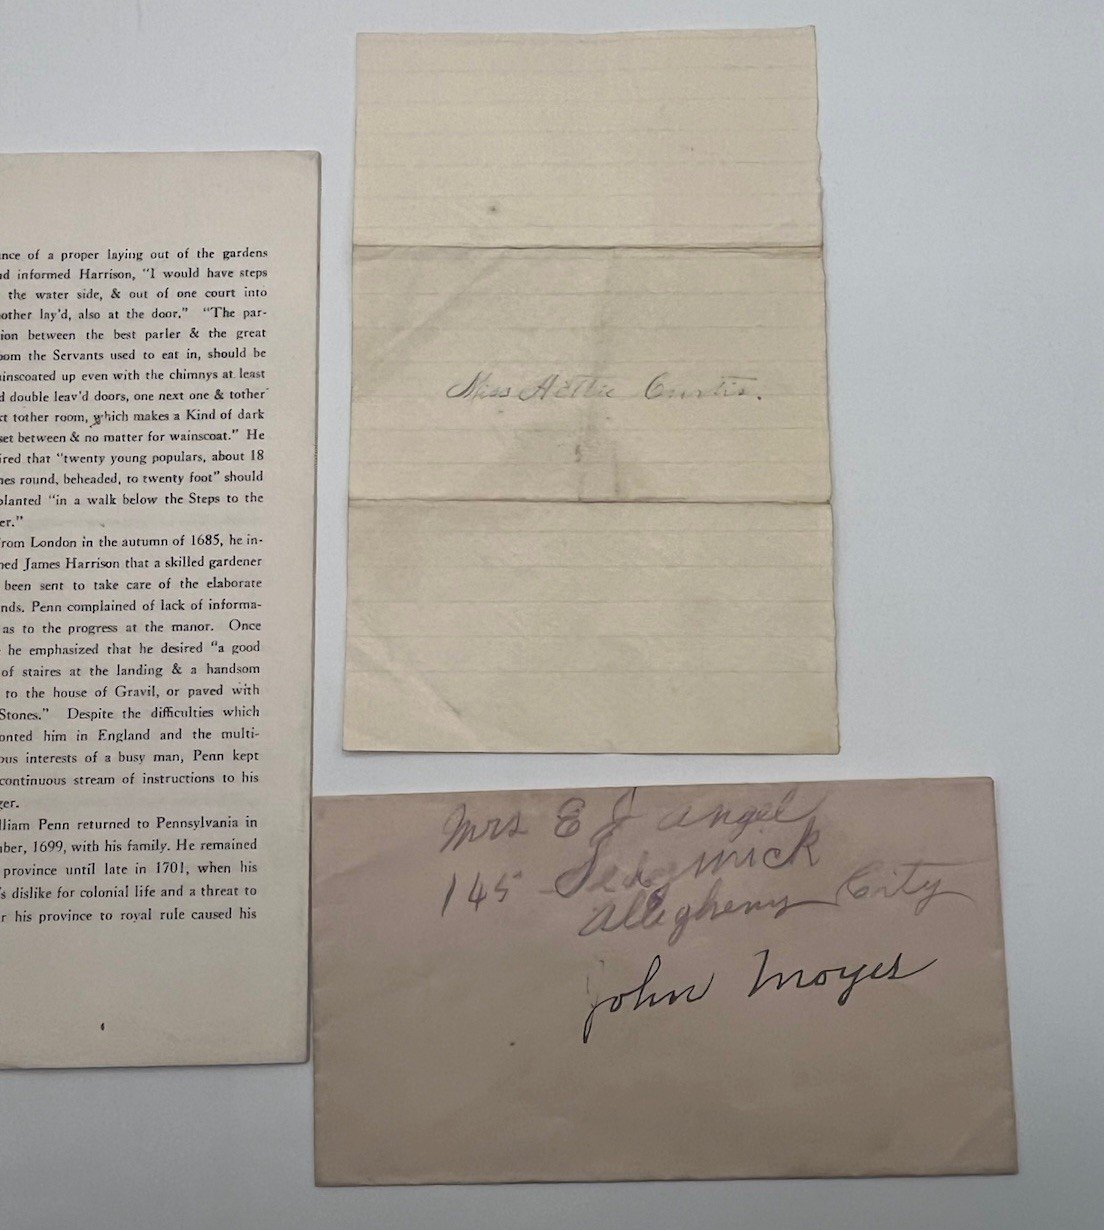 nce of a proper laying out of the gardens
d informed Harrison, "I would have steps
the water side, & out of one court into
other lay'd, also at the door." "The par-
ion between the best parler & the great
oom the Servants used to eat in, should be
ainscoated up even with the chimnys at least
d double leav'd doors, one next one & tother
xt tother room, which makes a Kind of dark
set between & no matter for wainscoat." He
ired that "twenty young populars, about 18
hes round, beheaded, to twenty foot" should
planted "in a walk below the Steps to the
er."
rom London in the autumn of 1685, he in-
ned James Harrison that a skilled gardener
been sent to take care of the elaborate
nds. Penn complained of lack of informa-
as to the progress at the manor. Once
he emphasized that he desired "a good
of staires at the landing & a handsom
to the house of Gravil, or paved with
Stones." Despite the difficulties which
onted him in England and the multi-
ous interests of a busy man, Penn kept
continuous stream of instructions to his
ger.
lliam Penn returned to Pennsylvania in
mber, 1699, with his family. He remained
province until late in 1701, when his
's dislike for colonial life and a threat to
r his province to royal rule caused his
Miss Hettie Curtis.
Mrs E J Angel
145 Sedgwick
Allegheny City
John Moyes